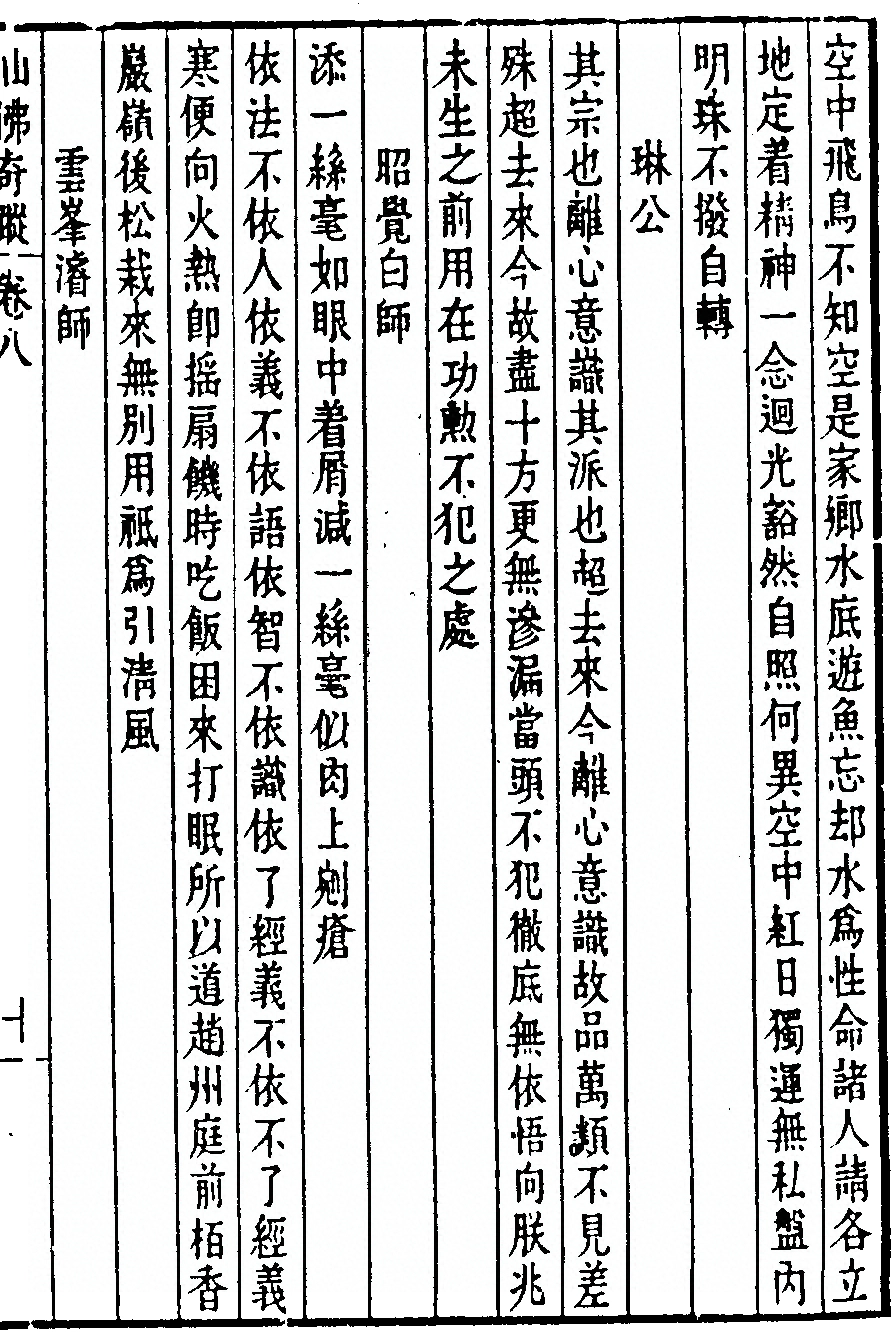 空中飛鳥不知空是家鄉水底遊魚忘却水為性命諸人請各立
地定着精神一念迴光豁然自照何異空中紅日獨運無私盤內
明珠不撥自轉
琳公
其宗也離心意識其派也超去來今離心意識故品萬類不見差
殊超去來今故盡十方更無滲漏當頭不犯徹底無依悟向朕兆
未生之前用在功勲不犯之處
昭覺白師
添一絲毫如眼中着屑減一絲毫似肉上剜瘡
依法不依人依義不依語依智不依識依了經義不依不了經義
寒便向火熱卽搖扇饑時吃飯困來打眠所以道趙州庭前栢香
巖嶺後松栽來無別用祗為引清風
雲峯濬師
仙佛奇蹤 卷八